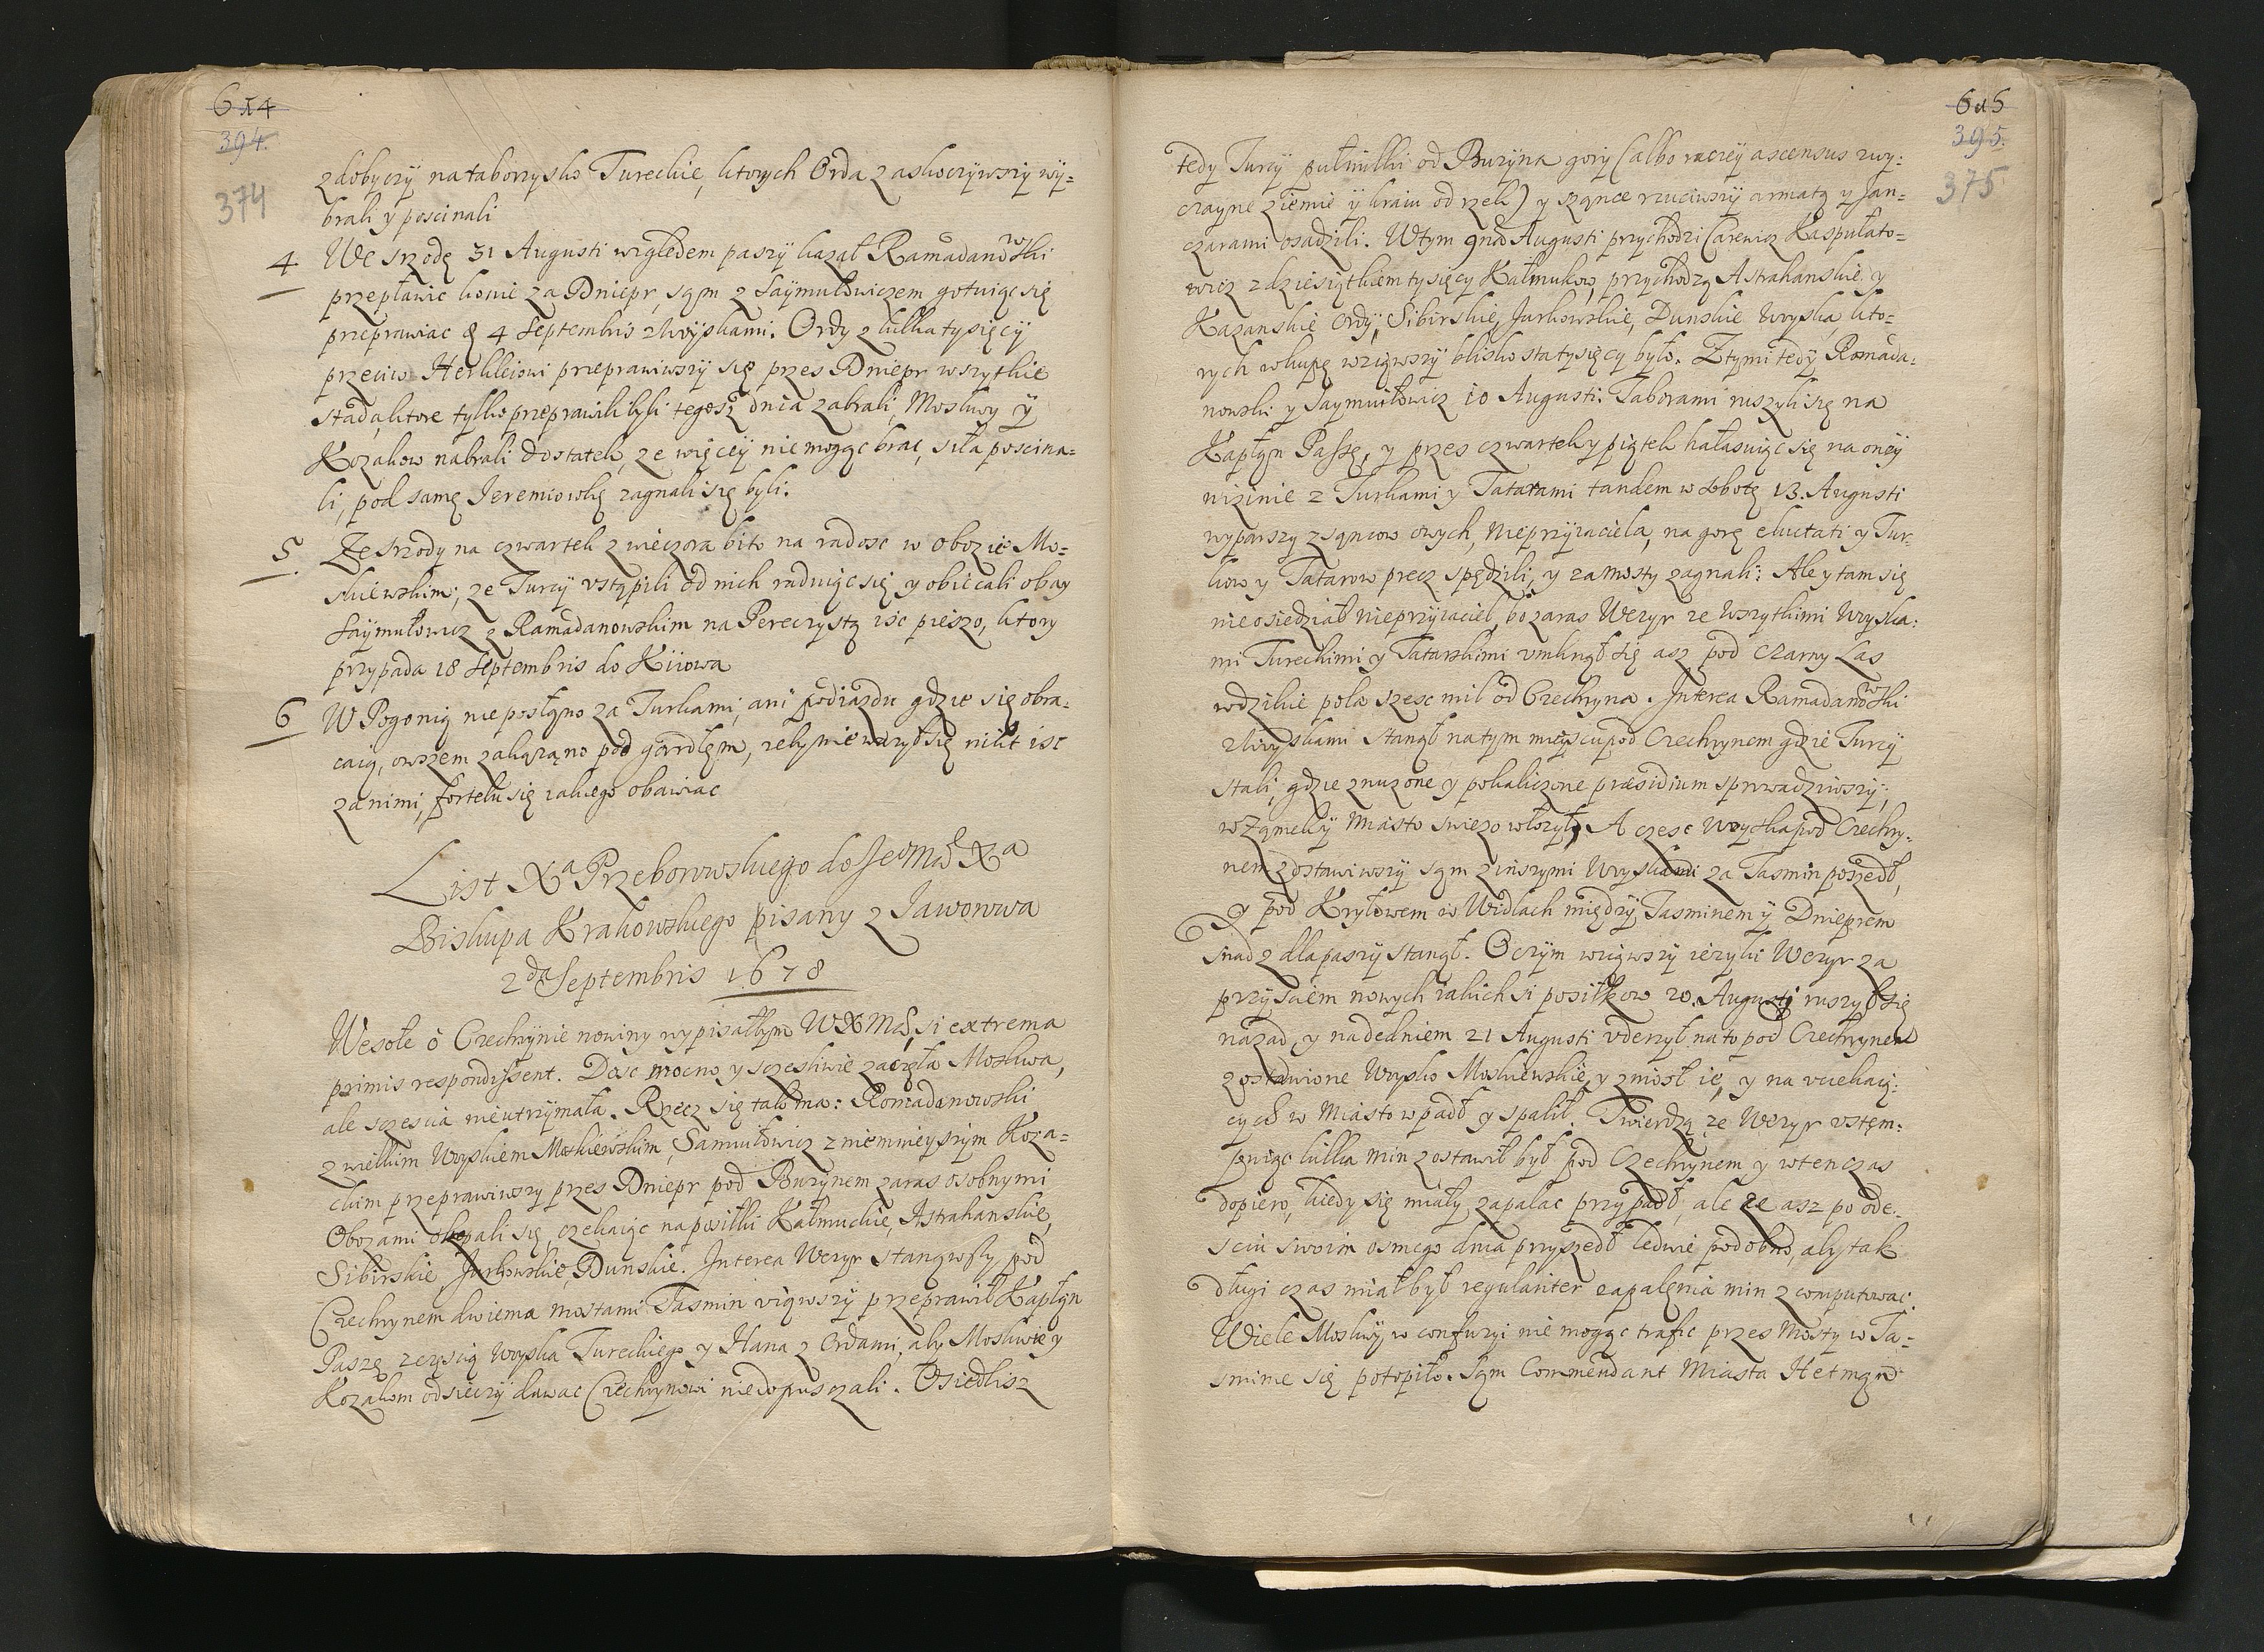 614
394.
374
zdobyczÿ na taborzysko Tureckie, ktorych Orda zaskoczÿwszÿ wÿ=
brali y poscinali
4 We srzodę 31 Augusti względem paszÿ kazał Ramadanowski
przepławic konie za Dniepr, sąm z Saÿmułowiczem gotuiąc się
przeprawiac 4 Septembris z Woÿskami. Ordy z kilka tysięcÿ
przeciw Herkleiowi przeprawiwszÿ się przes Dniepr wszytkie
stada, ktore tylko przeprawili byli tegosz dnia zabrali, Moskwy ÿ
Kozakow nabrali dostatek, ze więceÿ nie mogąc brac, siła poscina=
li, pod samę Jeremiowkę zagnali się byli.
5 Ze srzody na czwartek z wieczora bito na radosc w obozie Mo=
skiewskim, ze Turcÿ vstąpili od nich raduiąc się, y obiecali obay
Saÿmułowicz z Ramadanowskim na Pereczystą isc pieszo, ktory
przypada 18 Septembris do Kiiowa
6 W Pogonią nie posłąno za Turkami, ani podiazdu gdzie się obra=
caią, owszem zakąząno pod gardłęm, zeby nie wazył się nikt isc
za nimi, fortelu się iakiego obawiac
List Xa Przeborowskiego do Jeo Mci Xa
Biskupa Krakowskiego pisany z Jaworowa
2da Septembris 1678
Wesołe o Czechrÿnie nowiny wypisałbym WXMci, si extrema
primis respondissent. Dosc mocno y sczesliwie zaczęła Moskwa,
ale sczescia nie utrzÿmała. Rzecz się tak ma: Romadanowski
z wielkim Woyskiem Moskiewskim, Samułowicz z niemnieyszÿm Koza=
ckim przeprawiwszy przes Dniepr pod Buzÿnem zaras osobnymi
Obozami okopali się, czekaiąc na posiłki Kałmuckie, Astrahanskie,
Sibirskie, Jurkowskie, Dunskie. Interea Wezyr stanąwssy pod
Czechrynem dwiema mostami Tasmin viąwszÿ przeprawił Kapłąn
Paszę z częscią woyska Tureckiego y Hana z Ordami, aby Moskwie y
Kozakom odsieczÿ dawac Czechrynowi nie dopusczali. Osiedlisz
615
395.
375
tedy Turcÿ pułmilki od Buzÿna gorÿ (albo raczeÿ ascensus zwy:
czayne ziemie ÿ kraiu od rzek) y sząnce rzuciwszÿ armatą y Jan=
czarami osadzili. Wtym 9na Augusti przychodzi Carewicz Kaspułato=
wicz z dziesiątkiem tysięcy Kałmukow, przychodzą Astrahanskie y
Kazanskie Ordÿ, Sibirskie, Jurkowskie, Dunskie Woyska, kto=
rych w kupę wziąwszÿ blisko sta tysięcy było. Z tymi tedÿ Romada.
nowski y Saymułowicz 10 Augusti. Taborami ruszyli się na
Kapłąn Passę, y przes czwartek y piątek hałasuiąc się na oneÿ
nizinie z Turkami y Tatarami tandem w sobotę 13. Augusti
wyparszy z sząncow owych, nieprzyiaciela, na gorę eluctati y Tur=
kow y Tatarow precz spędzili, y za mosty zagnali: Ale y tam się
nieosiedział nieprzÿiaciel, bo zaras Wezyr ze wszytkimi Woyska:
mi Tureckimi y Tatarskimi vmknął się asz pod Czarny Las
w dzikie pola szesc mil od Czechryna. Interea Ramadanowski
z Woyskami stanął na tym mieyscu pod Czechrynem gdzie Turcÿ
stali, gdzie znuzone y pokaliczone praesidium sprowadziwszÿ,
w Ząmek y Miasto swiezo włozył, A czesc woyska pod Czechry=
nem zostawiwszÿ sąm z inszymi Woyskami za Tasmin poszedł,
y pod Kryłowem w Widłach międzÿ Tasminem ÿ Dnieprem
snadz dla paszÿ stanął. O czÿm wziąwszÿ ięzyki Wezyr za
przÿsciem nowych iakichsi posiłkow 20. Augusti ruszył się
nazad, y nadedniem 21 Augusti vderzył na to pod Czechrynem
zostawione Woysko Moskiewskie, y zniosł ie, y na vciekaią:
cych w Miasto wpadł y spalił. Twierdzą ze Wezyr vstęm:
puiąc kilka min zostawił był pod Czechrynem y wtenczas
dopiero, kiedy się miały zapalac przypadł, ale ze asz po ode..
sciu swoim osmego dnia przyszedł ledwie podobno, aby tak
długi czas miał był regulariter zapalęnia min z computowac.
Wiele Moskwÿ w confuzyi nie mogąc trafic przes Mosty w Ta=
sminie się potopiło. Sąm Commendant Miasta Hetmąn